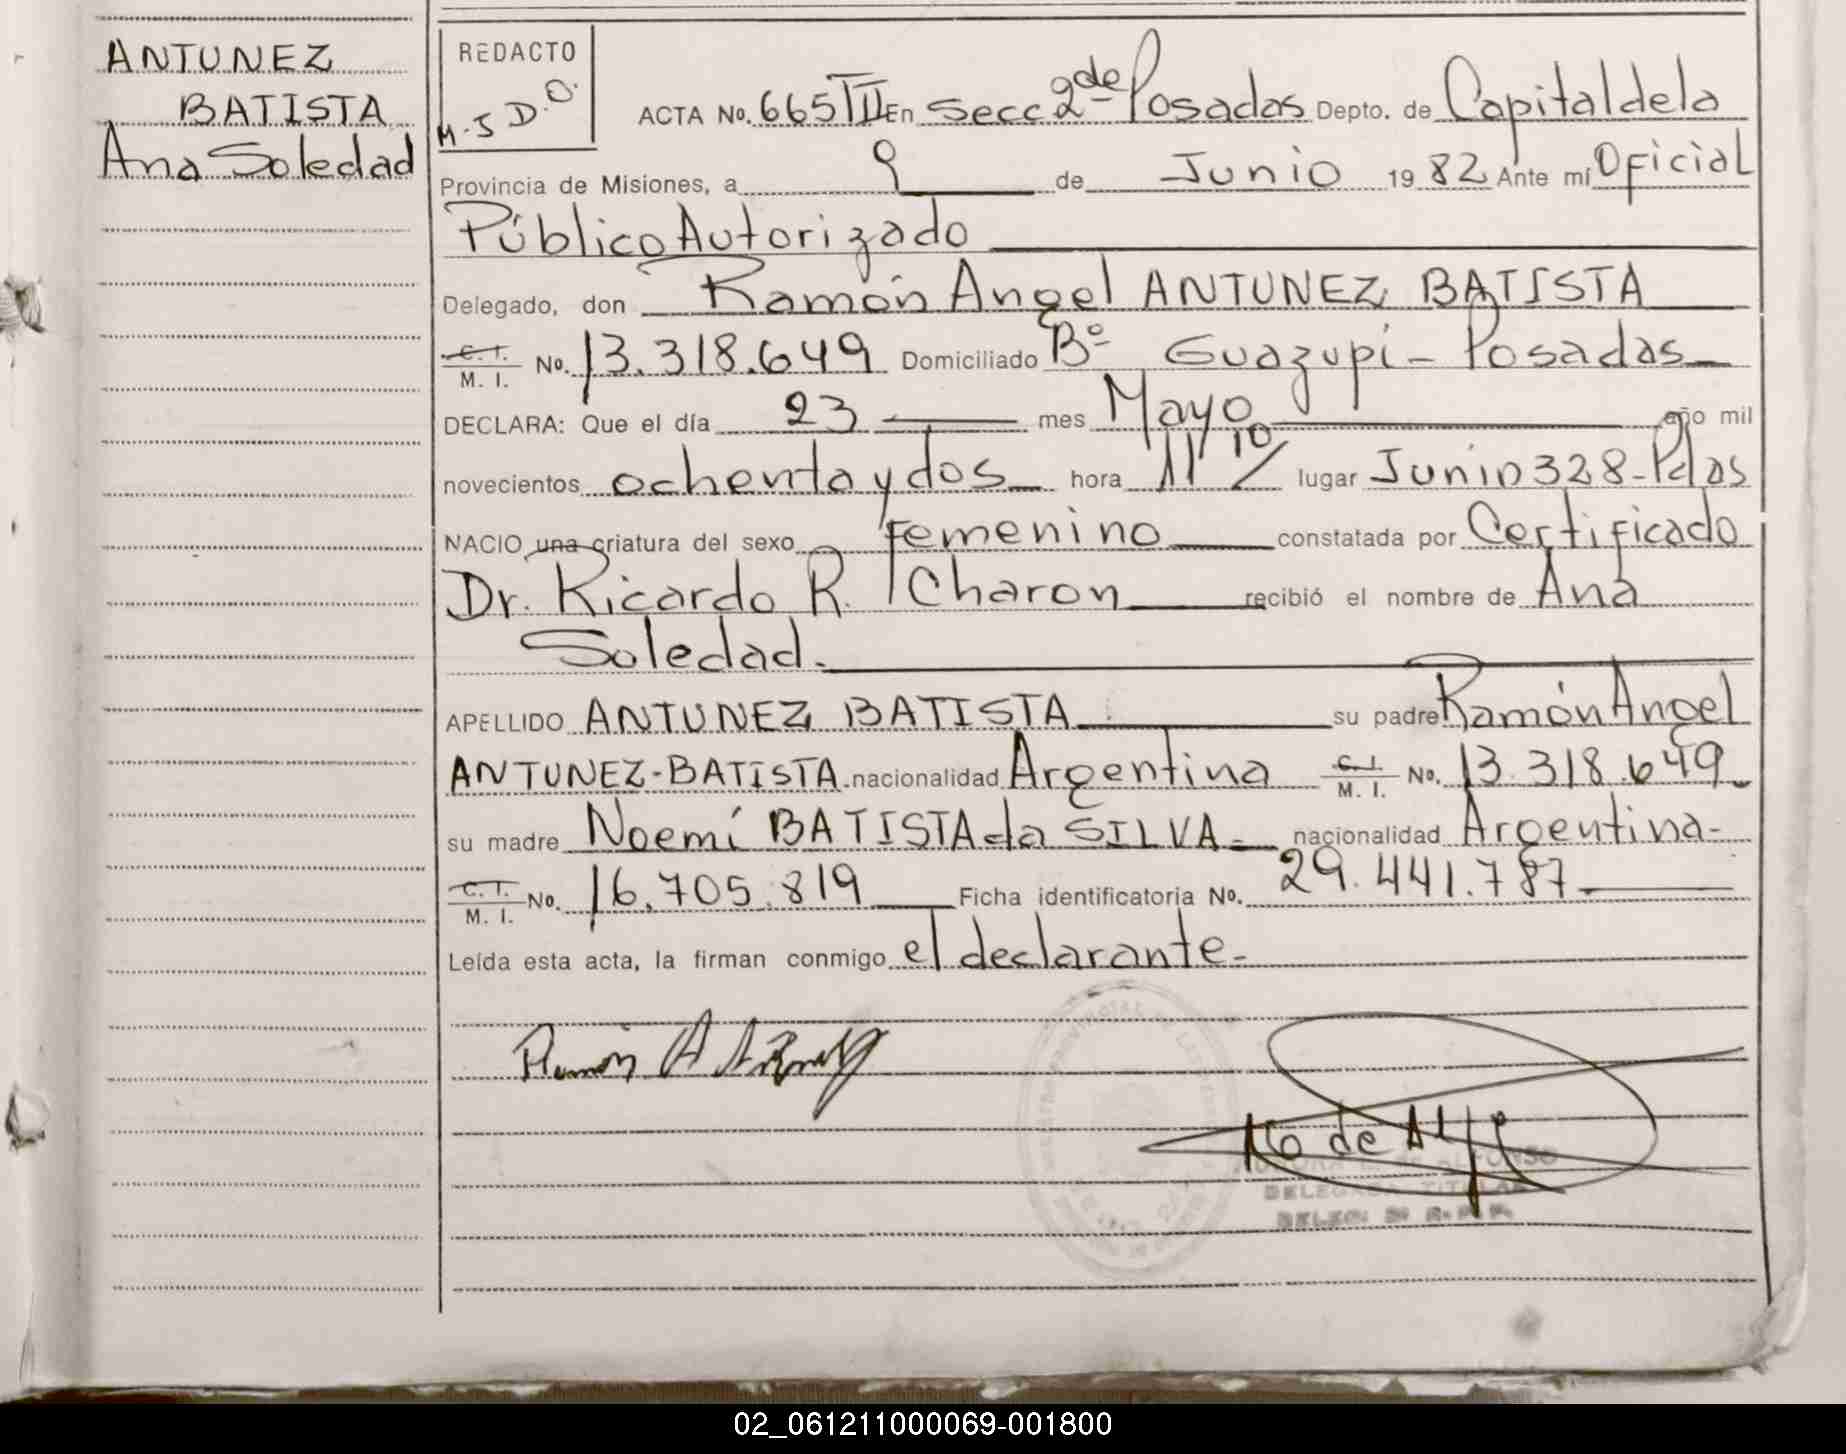 ANTUNEZ
BATISTA
Ana Soledad
REDACTO
M.J D.O.
ACTA No. 665 TII En Secc 2de Posadas Depto. de Capital de la
Provincia de Misiones, a 9 de Junio 1982 Ante mí Oficial
Público Autorizado
Delegado, don Ramón Angel ANTUNEZ BATISTA
C.I. M. I. No. 13.318.649 Domiciliado Bº Guazupi - Posadas
DECLARA: Que el día 23 mes Mayo año mil
novecientos ochenta y dos hora 11 10 lugar Junin 328-Pdas
NACIO una criatura del sexo femenino constatada por Certificado
Dr. Ricardo R. Charon recibió el nombre de Ana
Soledad.
APELLIDO ANTUNEZ BATISTA su padre Ramón Angel
ANTUNEZ-BATISTA nacionalidad Argentina C.I. M. I. No. 13.318.649
su madre Noemí BATISTA da SILVA nacionalidad Argentina
C.I. M. I. No. 16.705.819 Ficha identificatoria No. 29.441.787
Leída esta acta, la firman conmigo el declarante.
Ramón A
DELEGADA TITULAR
02_061211000069-001800